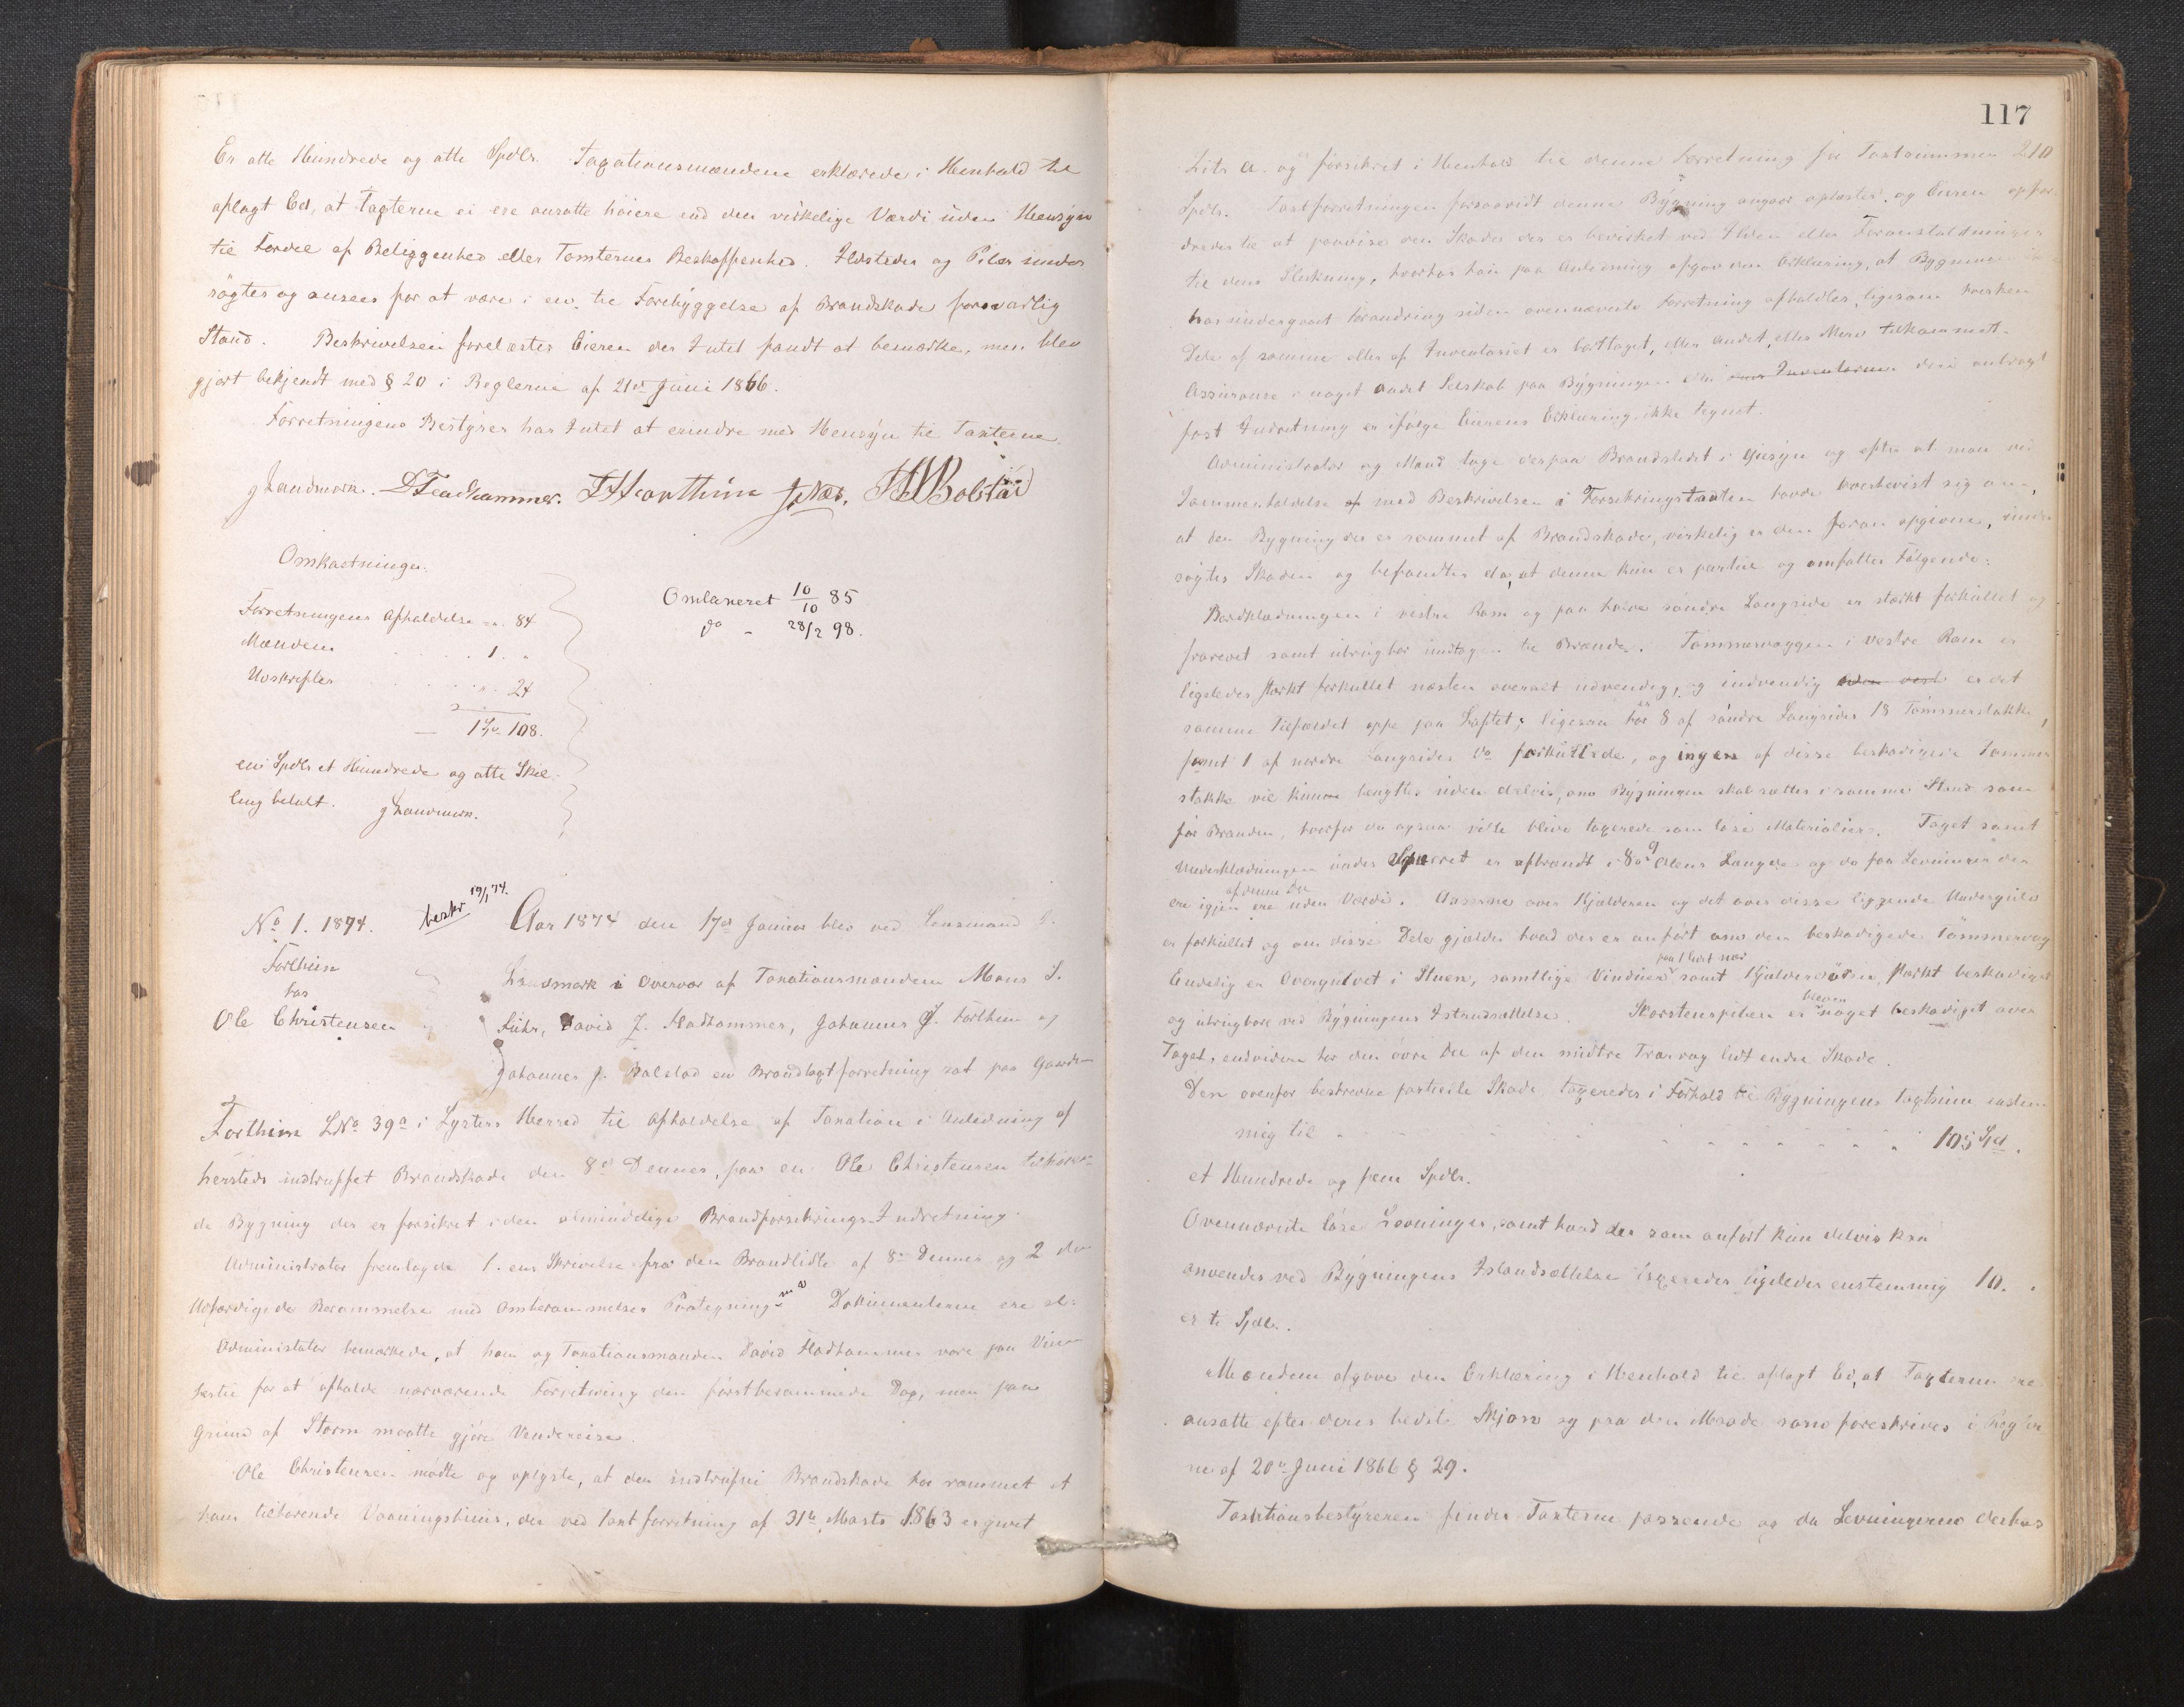 Er otte Hundrede og otte Spdlr. Taxationsmændene erklærede i Henhold til
aflagt Ed, at Taxterne ei ere ansatte höiere end den virkelige Værdi uden Hensyn
til Fordel af Beliggenhed eller Tomternes Beskaffenhed. Ildsteder og Piber under
sögtes og ansees for at være i en, til Forebyggelse af Brandskade forsvarlig
Stand. Beskrivelsen forelæstes Eieren der Intet fandt at bemærke, men blev
gjort bekjendt med § 20 i Reglerne af 21de Juni 1866.
Forretningens Bestyrer har Intet at erindre med Hensyn til Taxterne.
J Landmark. D Fladhammer. J Næs.
Omkostninger.
Forretningens Afholdelse 84
Mændene 1. "
Udskrifter 24
1 Spd. 108.
en Spdlr et Hundrede og otte Skil-
ling betalt. J Landmark.
Omtaxeret 10/10 85
do - 28/2 98.
No 1. 1874.
beskr 19/1 74.
Forthun
hos
Ole Christensen
Aar 1874 den 17de Januar blev ved Lensmand
Landmark i Overvær af Taxationsmændene Mons S.
Fuhr, David J. Fladhammer, Johannes J. Forthun og
Johannes J. Bolstad en Brandtaxtforretning sat paa Gaarden
Forthun LNo 39a i Lysters Herred til Afholdelse af Taxation i Anledning af
hersteds indtruffet Brandskade den 8de Dennes, paa en Ole Christensen tilhören-
de Bygning der er forsikret i den almindelige Brandforsikrings-Indretning.
Administrator fremlagde 1. en Skrivelse fra den Brandlidte af 8de Dennes og 2 den
udfærdigede Berammelse med Omberammelses Paategning. Dokumenterne ere
Administrator bemærkede, at han og Taxationsmanden David Fladhammer vare paa Veien
hertil for at afholde nærværende Forretning den förstberammede Dag, men paa
Grund af Storm maatte gjöre Vendereise.
Ole Christensen mödte og oplyste, at den indtrufne Brandskade har rammet et
ham tilhörende Vaaningshuus, der ved Taxtforretning af 31te Marts 1863 er givet
117
Litr a. og forsikret i Henhold til denne Forretning for Taxtsummen 210
Spdlr. Taxtforretningen forsaavidt denne Bygning angaar oplæstes, og Eieren opfor
dredes til at paavise den Skade der er bevirket ved Ilden eller Foranstaltninger
til dens Slukning, hvorhos han paa Anledning afgav den Erklæring, at Bygningen
har undergaaet Forandring siden ovennævnte Forretning afholdtes, ligesom hverken
Dele af samme eller af Inventariet er borttaget, eller Andet, eller Mere tilkommet.
Assurance i noget andet Selskab paa Bygningen eller dens anbragt
fast Indretning er ifölge Eierens Erklæring ikke tegnet.
Administrator og Mænd toge derpaa Brandstedet i Öiesyn og efter at man ved
Sammenholdelse med Beskrivelsen i Forsikringstaxten havde overbevist sig om,
at den Bygning der er rammet af Brandskade, virkelig er den foran opgivne, under
sögtes Skaden og befandtes da, at denne kun er partiel og omfatter Fölgende:
Bordklædningen i vestre Rum og paa halve söndre Langside er stærkt forkullet og
frarevet samt ubrugbar undtagen til Brænde. Tömmervæggen i vestre Rum er
ligeledes stærkt forkullet næsten overalt udvendig, og indvendig er det
samme Tilfældet oppe paa Loftet; ligesaa er 8 af söndre Langsides 18 Tömmerstokke,
samt 1 af nordre Langsides do forkullede, og ingen af disse beskadigede Tömmer
stokke vil kunne benyttes uden delvis, om Bygningen skal sættes i samme Stand som
för Branden, hvorfor de ogsaa ville blive taxerede som löse Materialier. Taget samt
Underklædningen under Sperret er afbrændt i 8 a 9 Alens Længde og de faa Levninger der
ere igjen af denne Del ere uden Værdi. Aaserne over Kjælderen og det over disse liggende Undergulv
er forkullet og om disse Dele gjælder hvad der er anfört om den beskadigede Tömmervæg
Endelig er Overgulvet i Stuen, samtlige Vinduer paa 1 Lust nær samt Kjælderdören, stærkt beskadiget
og ubrugbare ved Bygningens Istandsættelse. Skorstenspiben er bleven noget beskadiget over
Taget, endvidere har den övre Del af den midtre Tværvæg lidt endel Skade.
Den ovenfor beskrevne partielle Skade taxeredes i Forhold til Bygningens Taxtsum enstem
mig til 105 Spd.
et Hundrede og fem Spdlr.
Ovennævnte löse Levninger, samt hvad der som anfört kun delvis kan
anvendes ved Bygningens Istandsættelse taxeredes ligeledes enstemmig 10. "
er ti Spdlr.
Mændene afgave den Erklæring i Henhold til aflagt Ed, at Taxterne ere
ansatte efter deres bedste Skjön og paa den Maade som foreskrives i Regler
ne af 20de Juni 1866 § 29.
Taxtionsbestyreren finder Taxterne passende og da Levningerne derhos